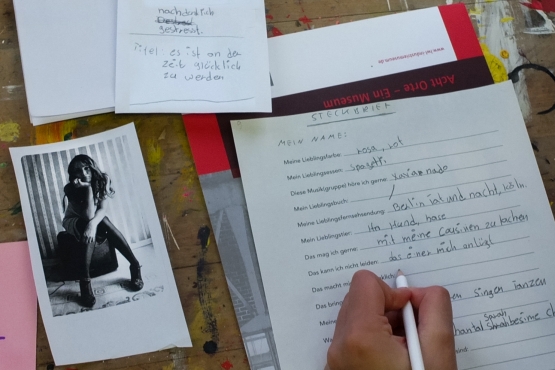 nachdenklich
gestresst.
Titel: es ist an der
zeit glücklich
zu werden
www.lwl-industriemuseum.de
Acht Orte – Ein Museum
STECKBRIEF
MEIN NAME:
Meine Lieblingsfarbe: rosa, rot
Mein Lieblingsessen: spagetti
Diese Musik(gruppe) höre ich gerne:
Mein Lieblingsbuch: /
Meine Lieblingsfernsehsendung: Berlin tag und nacht, köln
Mein Lieblingstier: Hund, hase
Das mag ich gerne: mit meine Cousinen zu lachen
Das kann ich nicht leiden: das einer mich anlügt
Das macht mich
Das bring singen tanzen
Meine sarah
chantal